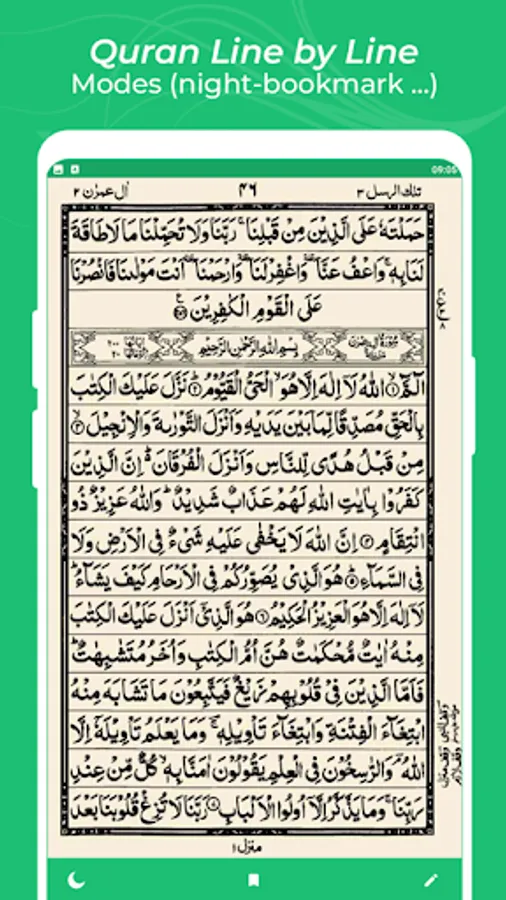 Quran Line by Line
Modes (night-bookmark ...)
09:05
تلك الرسل ٣
٤٦
اٰل عمرٰن ٢
حَمَلْتَهٗ عَلَى الَّذِيْنَ مِنْ قَبْلِنَا ۚ رَبَّنَا وَلَا تُحَمِّلْنَا مَا لَا طَاقَةَ
لَنَا بِهٖ ۚ وَاعْفُ عَنَّا ۥ وَاغْفِرْ لَنَا ۥ وَارْحَمْنَا ۥ اَنْتَ مَوْلٰىنَا فَانْصُرْنَا
عَلَى الْقَوْمِ الْكٰفِرِيْنَ
بِسْمِ اللّٰهِ الرَّحْمٰنِ الرَّحِيْمِ
الٓمّٓ ۙ﴿۱﴾ اللّٰهُ لَاۤ اِلٰهَ اِلَّا هُوَ ۙ الْحَيُّ الْقَيُّوْمُ ؕ﴿۲﴾ نَزَّلَ عَلَيْكَ الْكِتٰبَ
بِالْحَقِّ مُصَدِّقًا لِّمَا بَيْنَ يَدَيْهِ وَاَنْزَلَ التَّوْرٰىةَ وَالْاِنْجِيْلَ ۙ﴿۳﴾
مِنْ قَبْلُ هُدًى لِّلنَّاسِ وَاَنْزَلَ الْفُرْقَانَ ؕ اِنَّ الَّذِيْنَ
كَفَرُوْا بِاٰيٰتِ اللّٰهِ لَهُمْ عَذَابٌ شَدِيْدٌ ؕ وَاللّٰهُ عَزِيْزٌ ذُو
انْتِقَامٍ ﴿۴﴾ اِنَّ اللّٰهَ لَا يَخْفٰى عَلَيْهِ شَيْءٌ فِي الْاَرْضِ وَلَا
فِي السَّمَآءِ ؕ﴿۵﴾ هُوَ الَّذِيْ يُصَوِّرُكُمْ فِي الْاَرْحَامِ كَيْفَ يَشَآءُ ؕ
لَاۤ اِلٰهَ اِلَّا هُوَ الْعَزِيْزُ الْحَكِيْمُ ﴿۶﴾ هُوَ الَّذِيْۤ اَنْزَلَ عَلَيْكَ الْكِتٰبَ
مِنْهُ اٰيٰتٌ مُّحْكَمٰتٌ هُنَّ اُمُّ الْكِتٰبِ وَاُخَرُ مُتَشٰبِهٰتٌ ؕ
فَاَمَّا الَّذِيْنَ فِيْ قُلُوْبِهِمْ زَيْغٌ فَيَتَّبِعُوْنَ مَا تَشَابَهَ مِنْهُ
ابْتِغَآءَ الْفِتْنَةِ وَابْتِغَآءَ تَاْوِيْلِهٖ ۚ وَمَا يَعْلَمُ تَاْوِيْلَهٗۤ اِلَّا
اللّٰهُ ۘ وَالرّٰسِخُوْنَ فِي الْعِلْمِ يَقُوْلُوْنَ اٰمَنَّا بِهٖ ۙ كُلٌّ مِّنْ عِنْدِ
رَبِّنَا ۚ وَمَا يَذَّكَّرُ اِلَّاۤ اُولُوا الْاَلْبَابِ ﴿۷﴾ رَبَّنَا لَا تُزِغْ قُلُوْبَنَا بَعْدَ
منزل ۱